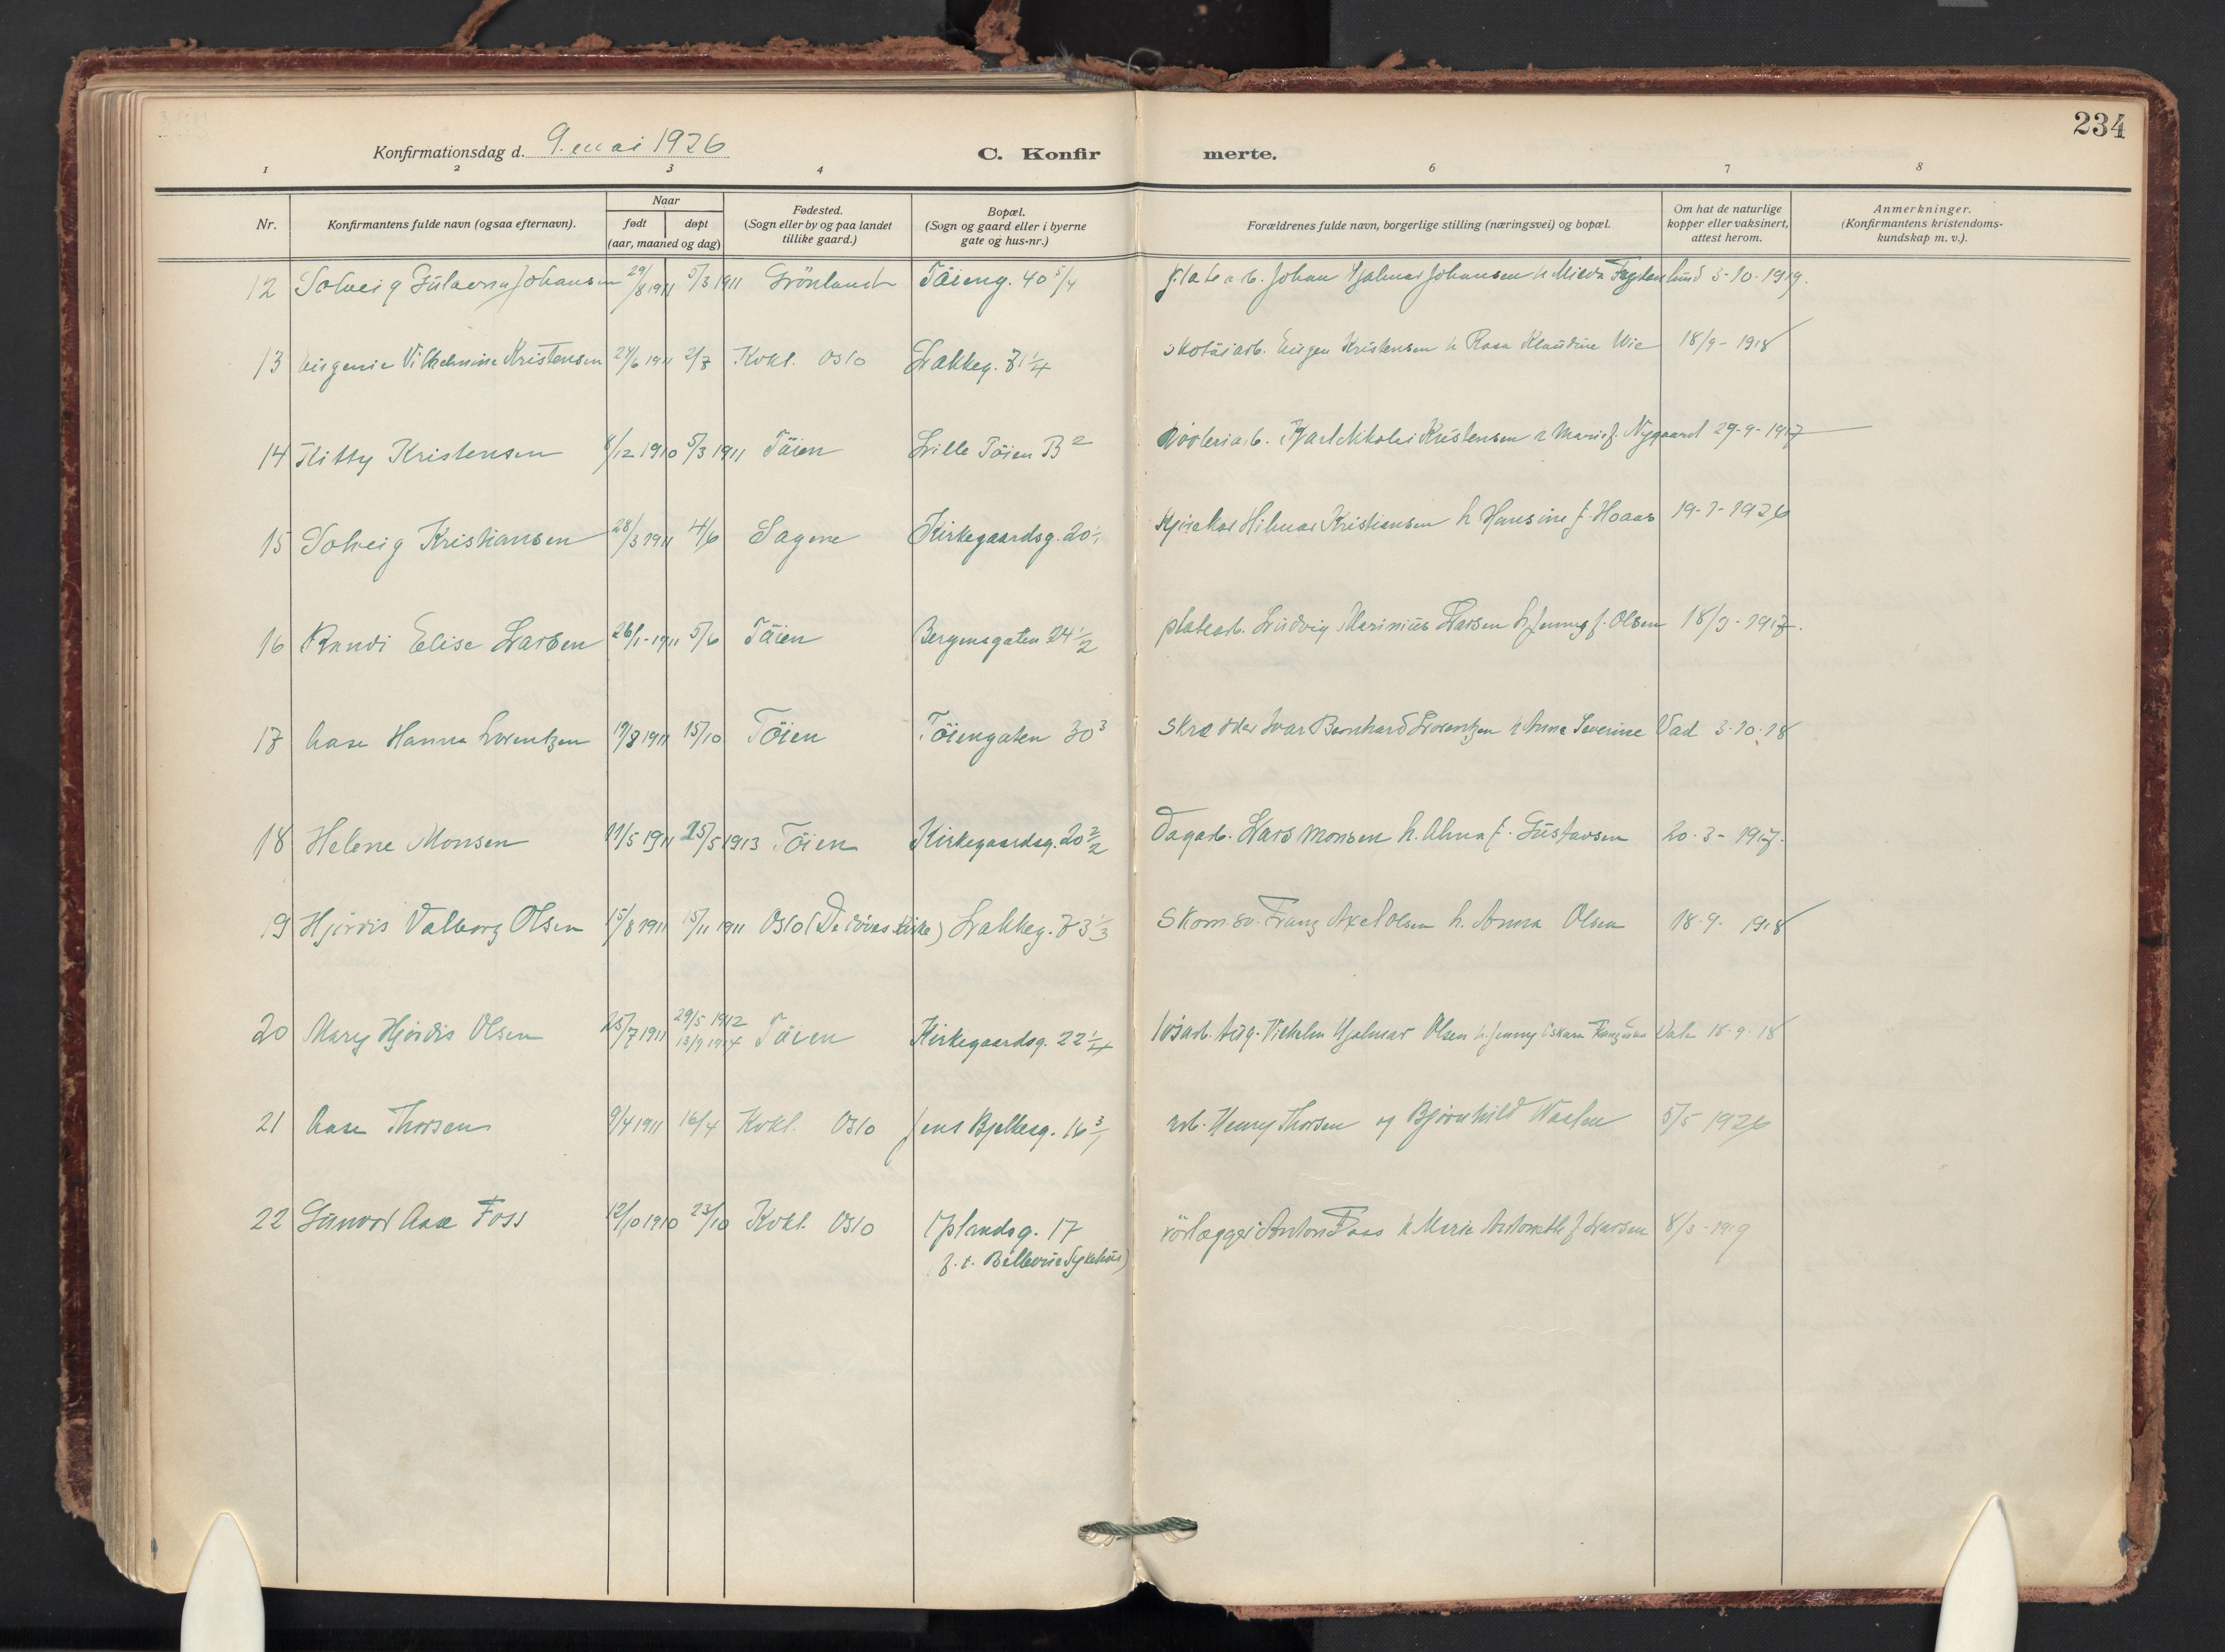 234
Konfirmationsdag d. 9. mai 1926 C. Konfirmerte.
1 2 3 4 6 7 8
Nr. Konfirmantens fulde navn (ogsaa efternavn). Naar født døpt (aar, maaned og dag) Fødested. (Sogn eller by og paa landet tillike gaard.) Bopæl. (Sogn og gaard eller i byerne gate og hus-nr.) Forældrenes fulde navn, borgerlige stilling (næringsvei) og bopæl. Om hat de naturlige kopper eller vaksinert, attest herom. Anmerkninger. (Konfirmantens kristendoms-kundskap m. v.).
12 Solveig Johansen 29/8 1911 5/3 1911 Grönland Töieng. 40 5/4 Johan Hjalmar Johansen h Milda 5-10-1919.
13 Eugenie Vilhelmine Kristensen 24/6 1911 2/7 Kvkl. Oslo Lakkeg. 71 1/4 skotöiarb. Eugen Kristensen h Rosa Klaudine Wie 18/9-1918
14 Kitty Kristensen 8/12 1910 5/3 1911 Töien Lille Töien B 2 Karl Nikolai Kristensen h Marie f. Nygaard 29-9-1917
15 Solveig Kristiansen 28/3 1911 4/6 Sagene Kirkegaardsg. 20 Hilmar Kristiansen h Hansine f. Hoaas 19-1-1926
16 Randi Elise Larsen 26/1-1911 5/6 Töien Bergensgaten 24 1/2 platearb. Ludvig Marinius Larsen h Jenny f. Olsen 18/9-1917.
17 Aase Hanna Lorentzen 19/8 1911 15/10 Töien Töiengaten 30 3 Skrædder Ivar Bernhard Lorentzen h Anna Severine Vad 3.10.18
18 Helene Monsen 11/5 1911 25/5 1913 Töien Kirkegaardsg. 20 2/2 Dagarb. Lars Monsen h. Alma f. Gustavsen 20.3-1917.
19 Hjördis Valborg Olsen 15/8 1911 15/11 1911 Oslo (De döves kirke) Lakkeg. 73 1/3 Skom.sv. Franz Axel Olsen h. Anna Olsen 18.9. 1918
20 Mary Hjördis Olsen 25/7 1911 29/5 1912 13/9 1914 Töien Kirkegaardsg. 22 1/4 lösarb. Aug. Vilhelm Hjalmar Olsen h. Jenny Oskara Vale 18.9.18
21 Aase Thorsen 9/4 1911 16/4 Kvkl. Oslo Jens Bjelkesg. 16 3/1 arb. Henry Thorsen og Björnhild Waalen 5/5 1926
22 Gunvor Aase Foss 12/10 1910 23/10 Kvkl. Oslo Uplandsg. 17
(f. t. Bellevue Sykehus) rörlægger Anton Foss h Marie Antonette f. Larsen 8/3-1919